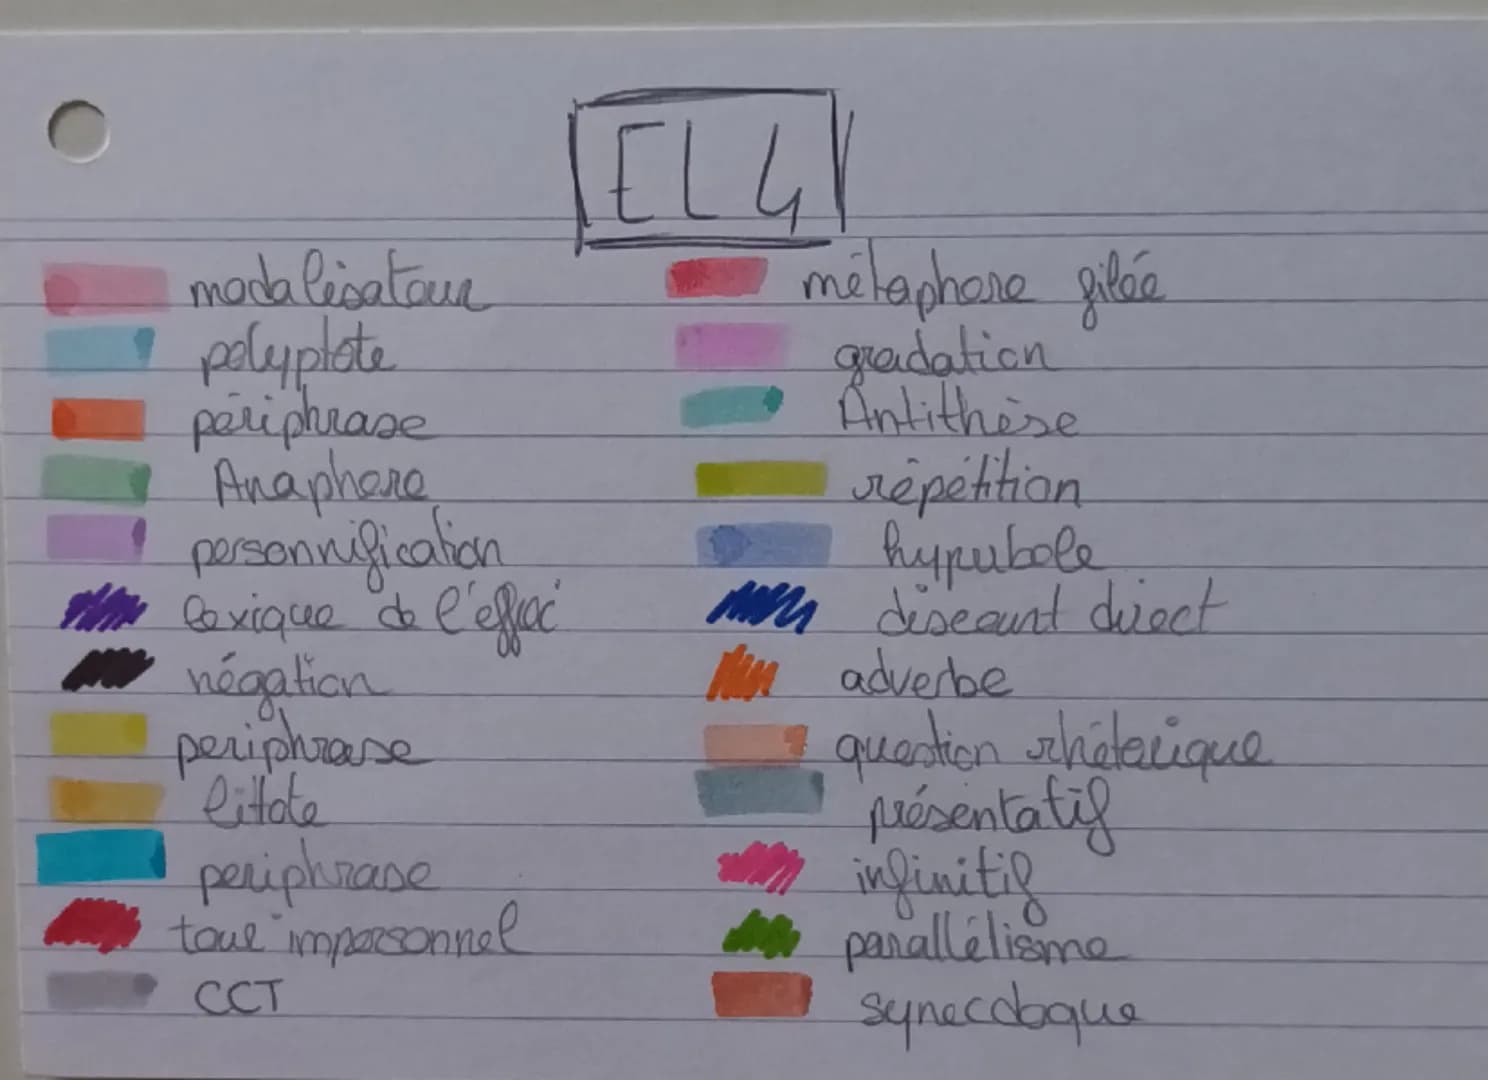 EL 4
modalisateur métaphore filée
polyptote gradation
périphrase Antithèse
Anaphore répétition
personnification hyperbole
lexique de l'effroi discourt direct
négation adverbe
periphrase question rhétorique
littote présentatif
periphrase infinitif
tour impersonnel parallélisme
CCT synecdoque